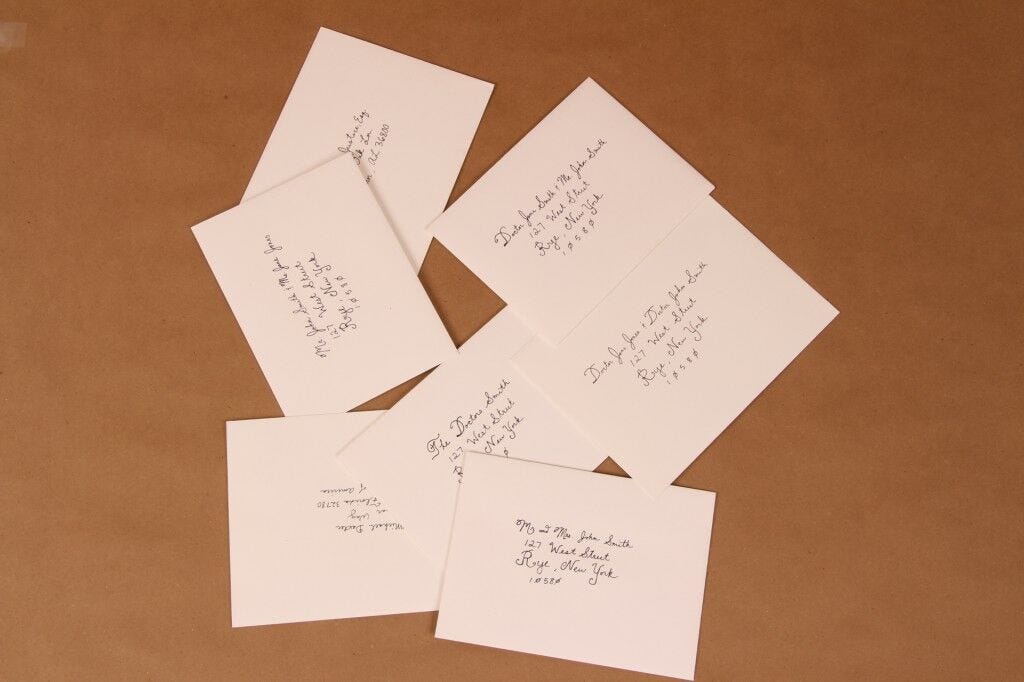 Esq.
Ln
AL 36800
Doctor Jane Smith & Mr. John Smith
127 West Street
Rye, New York
10580
Mr. John Smith & Ms. Jane Jones
127 West Street
Rye, New York
10580
Doctor Jane Jones & Doctor John Smith
127 West Street
Rye, New York
10580
The Doctors Smith
127 West Street
New York
0
Michael Dexter
Way
Florida 32780
of America
Mr. and Mrs. John Smith
127 West Street
Rye, New York
10580